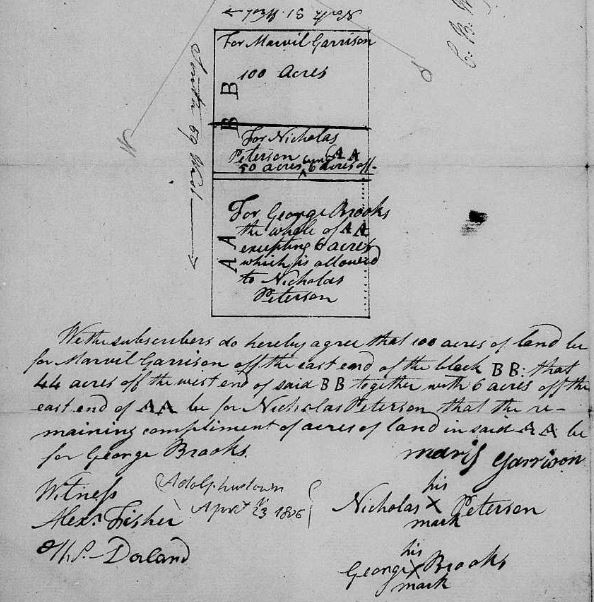 North 31 West
C. B. W
For Marvil Garrison
100 Acres
B B
South 59 West
N
For Nicholas
Peterson
50 acres, 6 acres off
AA
For George Brooks
the whole of AA
excepting 6 acres
which is allowed
to Nicholas
Peterson
A A
We the subscribers do hereby agree that 100 acres of land be
for Marvil Garrison off the east end of the block BB: that
44 acres off the west end of said BB together with 6 acres off the
east end of AA be for Nicholas Peterson, that the re-
maining compliment of acres of land in said AA be
for George Brooks.
Garrison
Witness
Adolphustown
April 23 1806
Alexr Fisher
his
Nicholas X Peterson
mark
Dorland
his
George X Brooks
mark